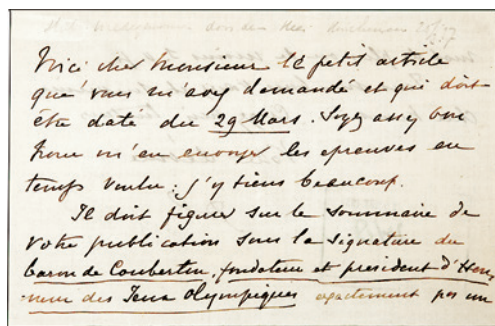 Voici cher Monsieur le petit article
que vous m'avez demandé et qui doit
être daté du 29 Mars. Soyez assez bon
pour m'en envoyer les épreuves en
temps voulu : j'y tiens beaucoup.
Il doit figurer sur le sommaire de
votre publication sous la signature du
baron de Coubertin, fondateur et président d'Hon-
neur des Jeux Olympiques exactement pas un